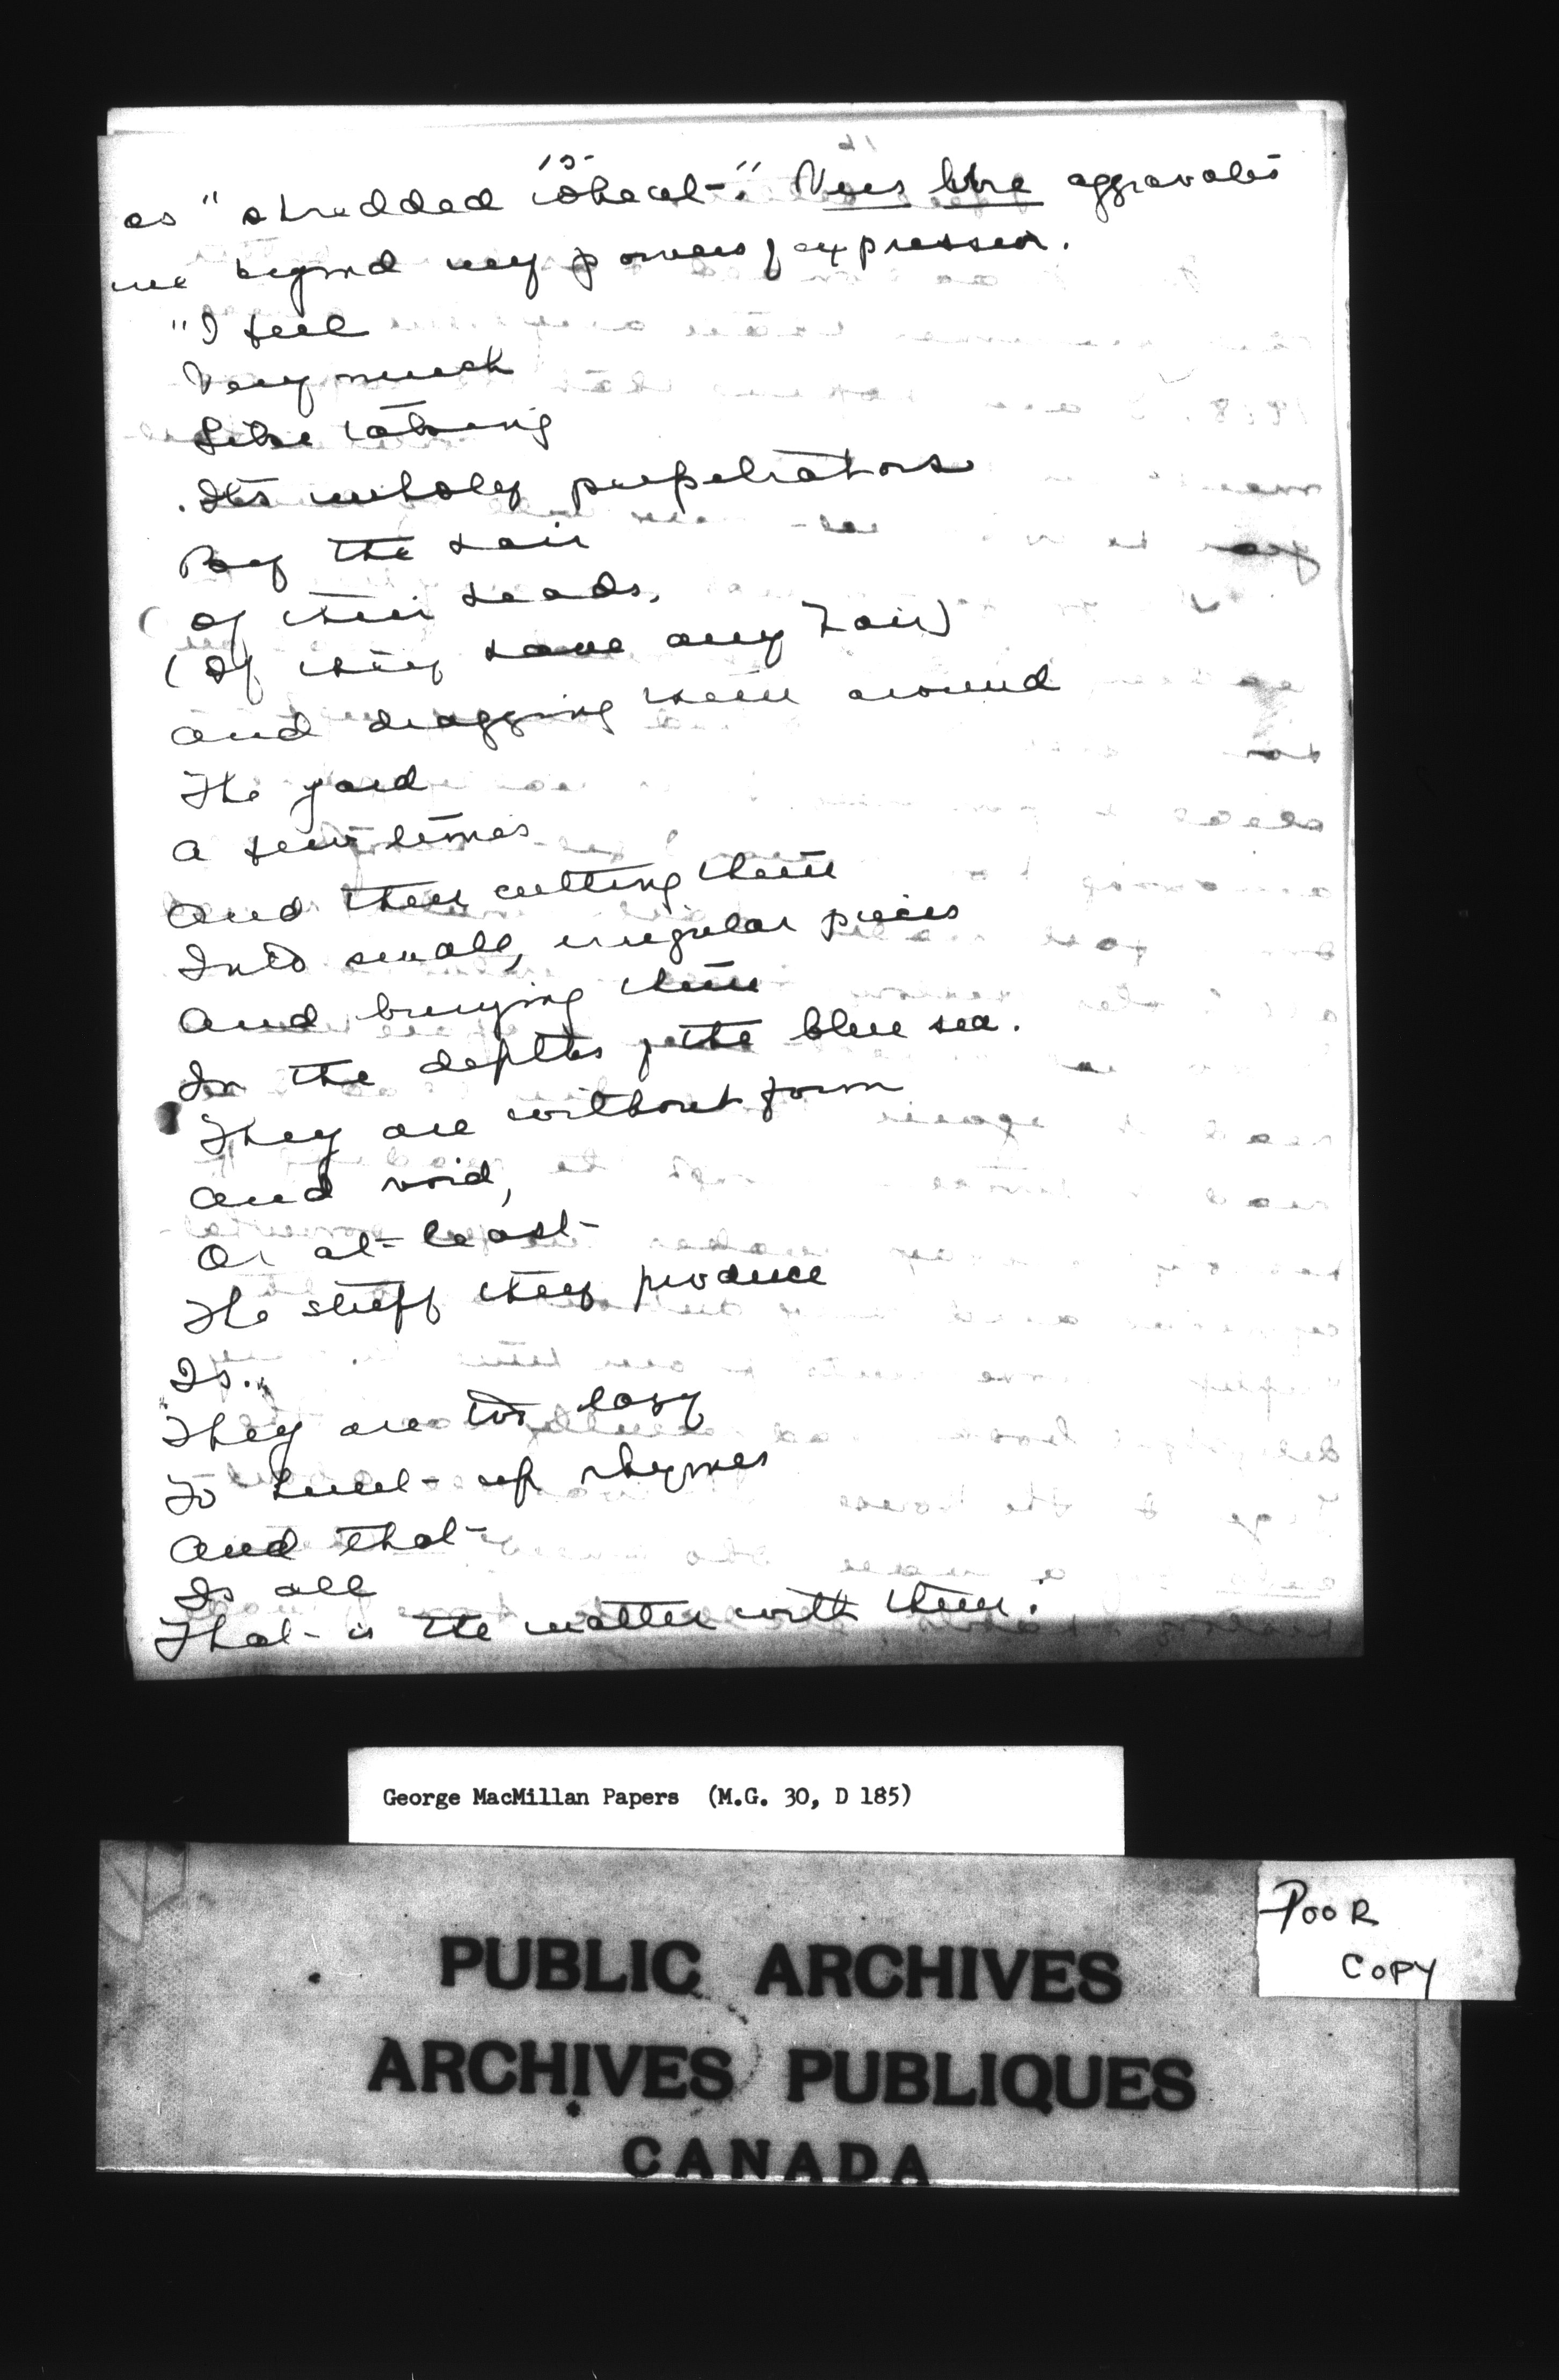 15
as "shredded wheat". Vers libre aggravates
me beyond my powers of expression.
"I feel
Very much
Like taking
Its unholy perpetrators
By the hair
Of their heads,
(If they have any hair)
And dragging them around
The yard
A few times
And then cutting them
Into small, irregular pieces
And burying them
In the depths of the blue sea.
They are without form
And void,
Or at least
The stuff they produce
Is.
They are too lazy
To hunt up rhymes
And that
Is all
That is the matter with them."
George MacMillan Papers (M.G. 30, D 185)
POOR
COPY
PUBLIC ARCHIVES
ARCHIVES PUBLIQUES
CANADA